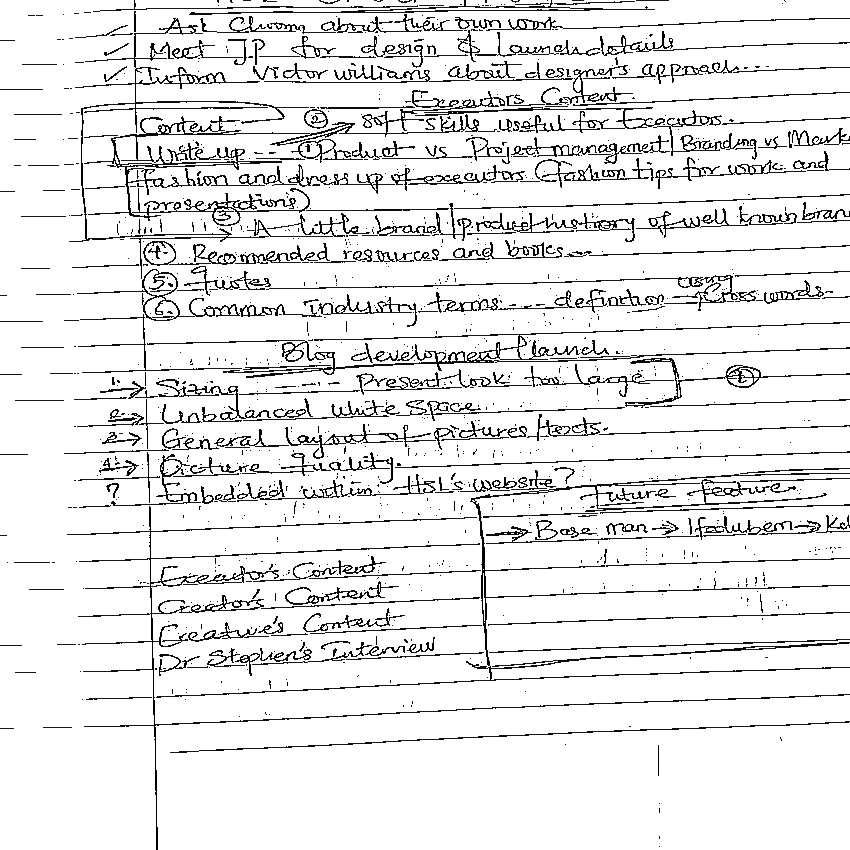 ✓ Ask Chioma about their own work
✓ Meet J.P for design & launch details
✓ Inform Victor williams about designer's approach...
Executors Content
Content ② → Soft skills useful for Executors.
Write up -- ① Product vs Project management | Branding vs
fashion and dress up of executors (fashion tips for work and
presentations)
③ → A little brand/product history of well known
④ Recommended resources and books...
⑤. Quotes
⑥. Common Industry terms --- definition → using Cross words.
Blog development/launch.
1. → Sizing ---- Present look too large
2 → Unbalanced White Space
2 → General layout of pictures/texts.
→ Picture Quality.
? Embedded within HSL's website?
Future Feature.
→ Base man → Ifedubem →
Executor's Content
Creator's Content
Creative's Content
Dr Stephen's Interview